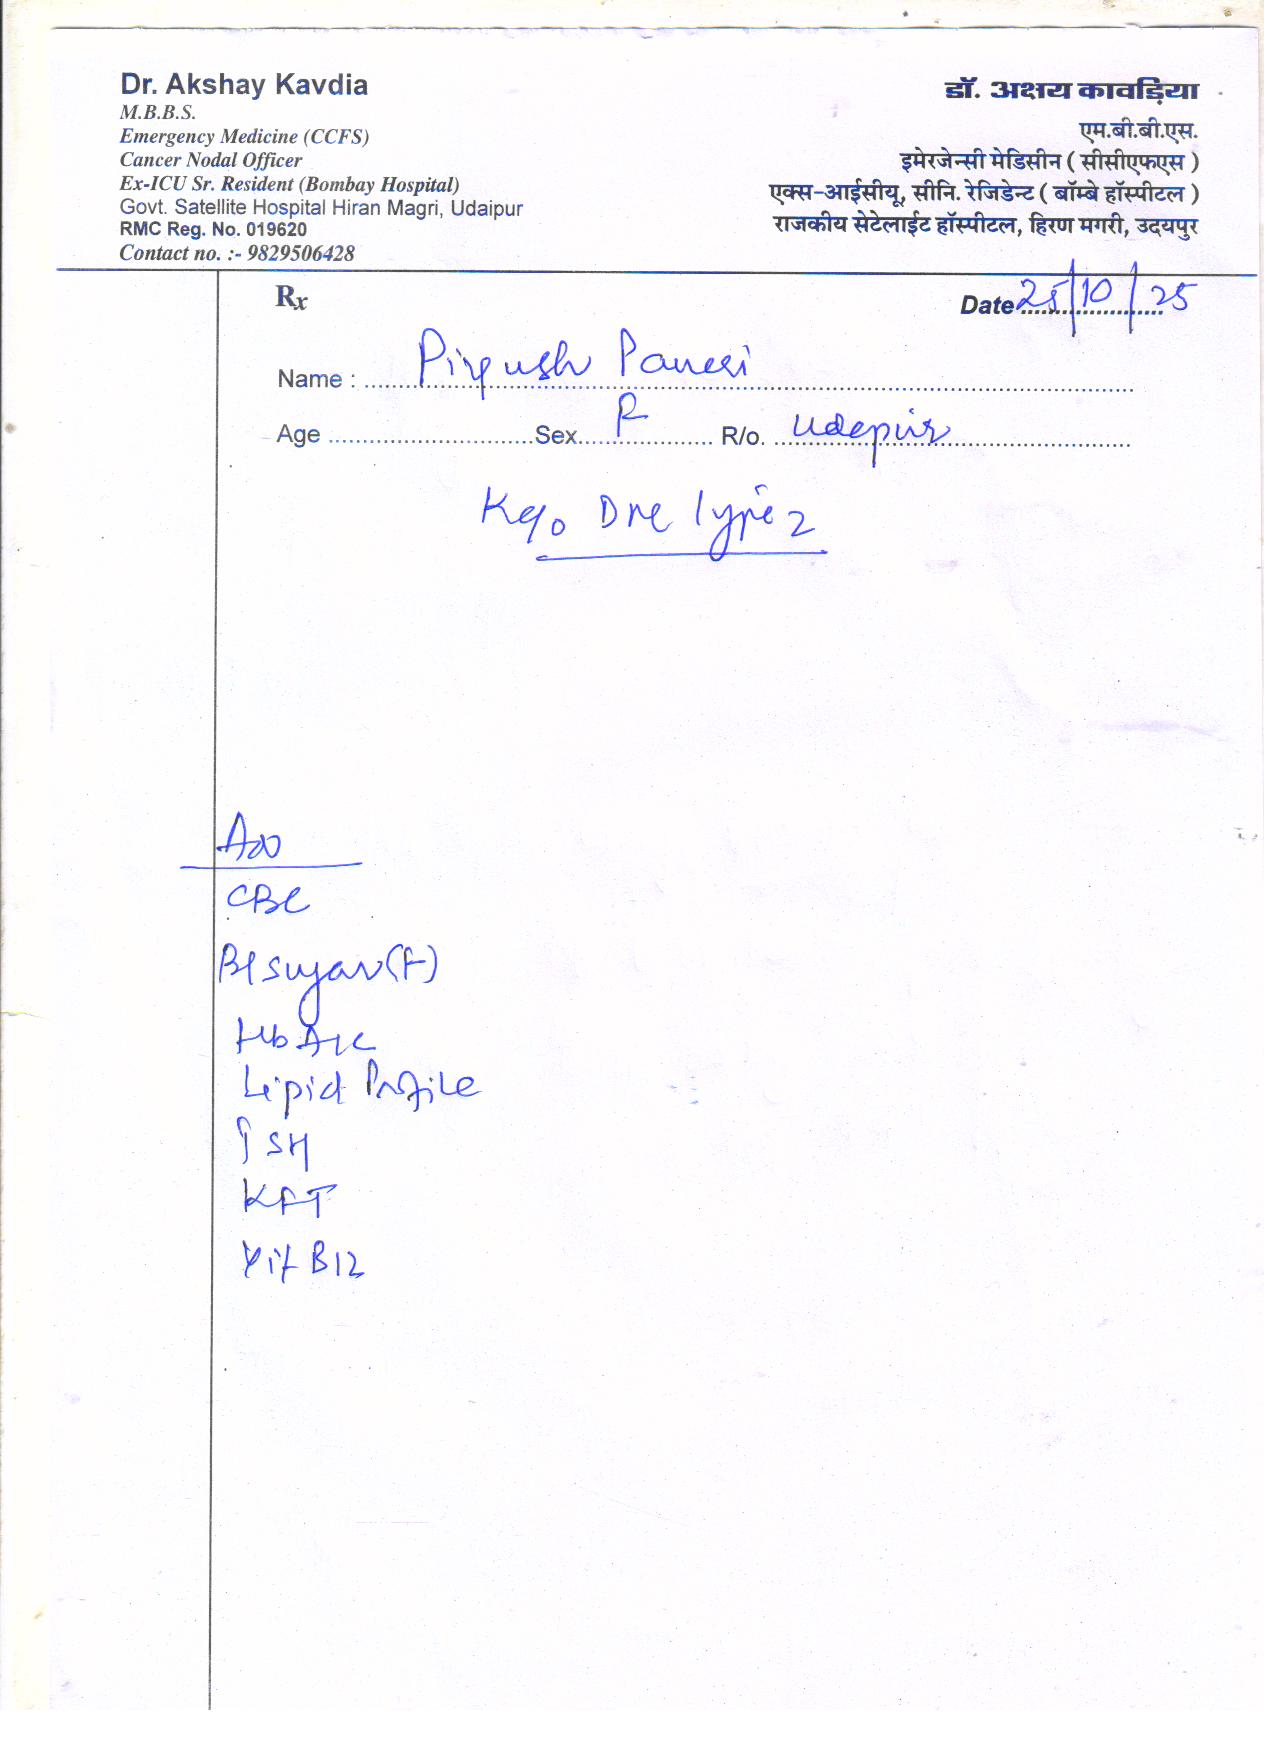 Dr. Akshay Kavdia
M.B.B.S.
Emergency Medicine (CCFS)
Cancer Nodal Officer
Ex-ICU Sr. Resident (Bombay Hospital)
Govt. Satellite Hospital Hiran Magri, Udaipur
RMC Reg. No. 019620
Contact no. :- 9829506428
डॉ. अक्षय कावड़िया
एम.बी.बी.एस.
इमेरजेन्सी मेडिसीन ( सीसीएफएस )
एक्स-आईसीयू, सीनि. रेजिडेन्ट ( बॉम्बे हॉस्पीटल )
राजकीय सेटेलाईट हॉस्पीटल, हिरण मगरी, उदयपुर
Rx
Date 25/10/25
Name : Piyush
Age Sex R/o. Udepur
K/c/o DM Type 2
Adv
CBC
Bl sugar (F)
HbA1C
Lipid Profile
TSH
KFT
Vit B12